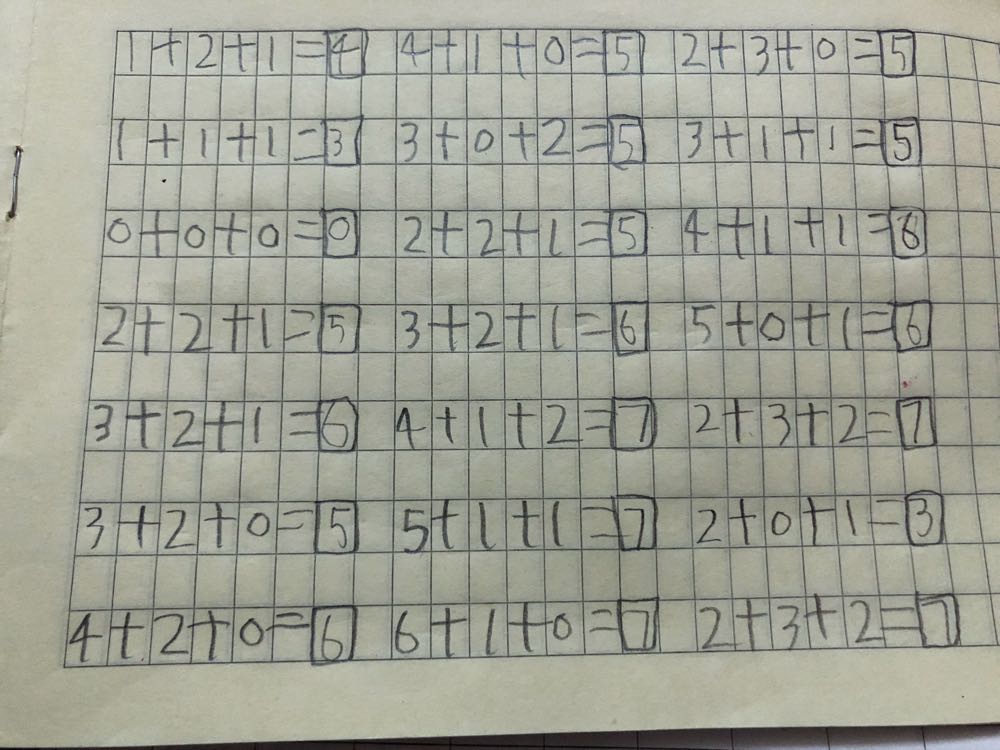 1+2+1=4 4+1+0=5 2+3+0=5
1+1+1=3 3+0+2=5 3+1+1=5
0+0+0=0 2+2+1=5 4+1+1=6
2+2+1=5 3+2+1=6 5+0+1=6
3+2+1=6 4+1+2=7 2+3+2=7
3+2+0=5 5+1+1=7 2+0+1=3
4+2+0=6 6+1+0=7 2+3+2=7